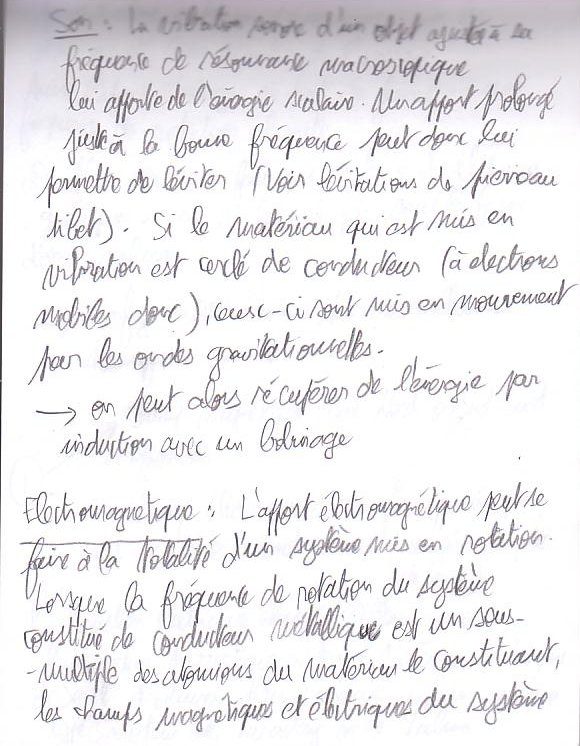 Son : La vibration sonore d'un objet ajustée à sa
fréquence de résonnance macroscopique
lui apporte de l'énergie scalaire. Un apport prolongé
juste à la bonne fréquence peut donc lui
permettre de léviter (Voir lévitations de pierre au
tibet). Si le matériau qui est mis en
vibration est cerclé de conducteur (à électrons
mobiles donc), ceux-ci sont mis en mouvement
par les ondes gravitationnelles.
→ on peut alors récupérer de l'énergie par
induction avec un bobinage
Electromagnetique : L'apport électromagnétique peut se
faire à la totalité d'un système mis en rotation.
Lorsque la fréquence de rotation du système
constitué de conducteur métallique est un sous-
-multiple des atomiques du matériau le constituant,
les champs magnétiques et électriques du système